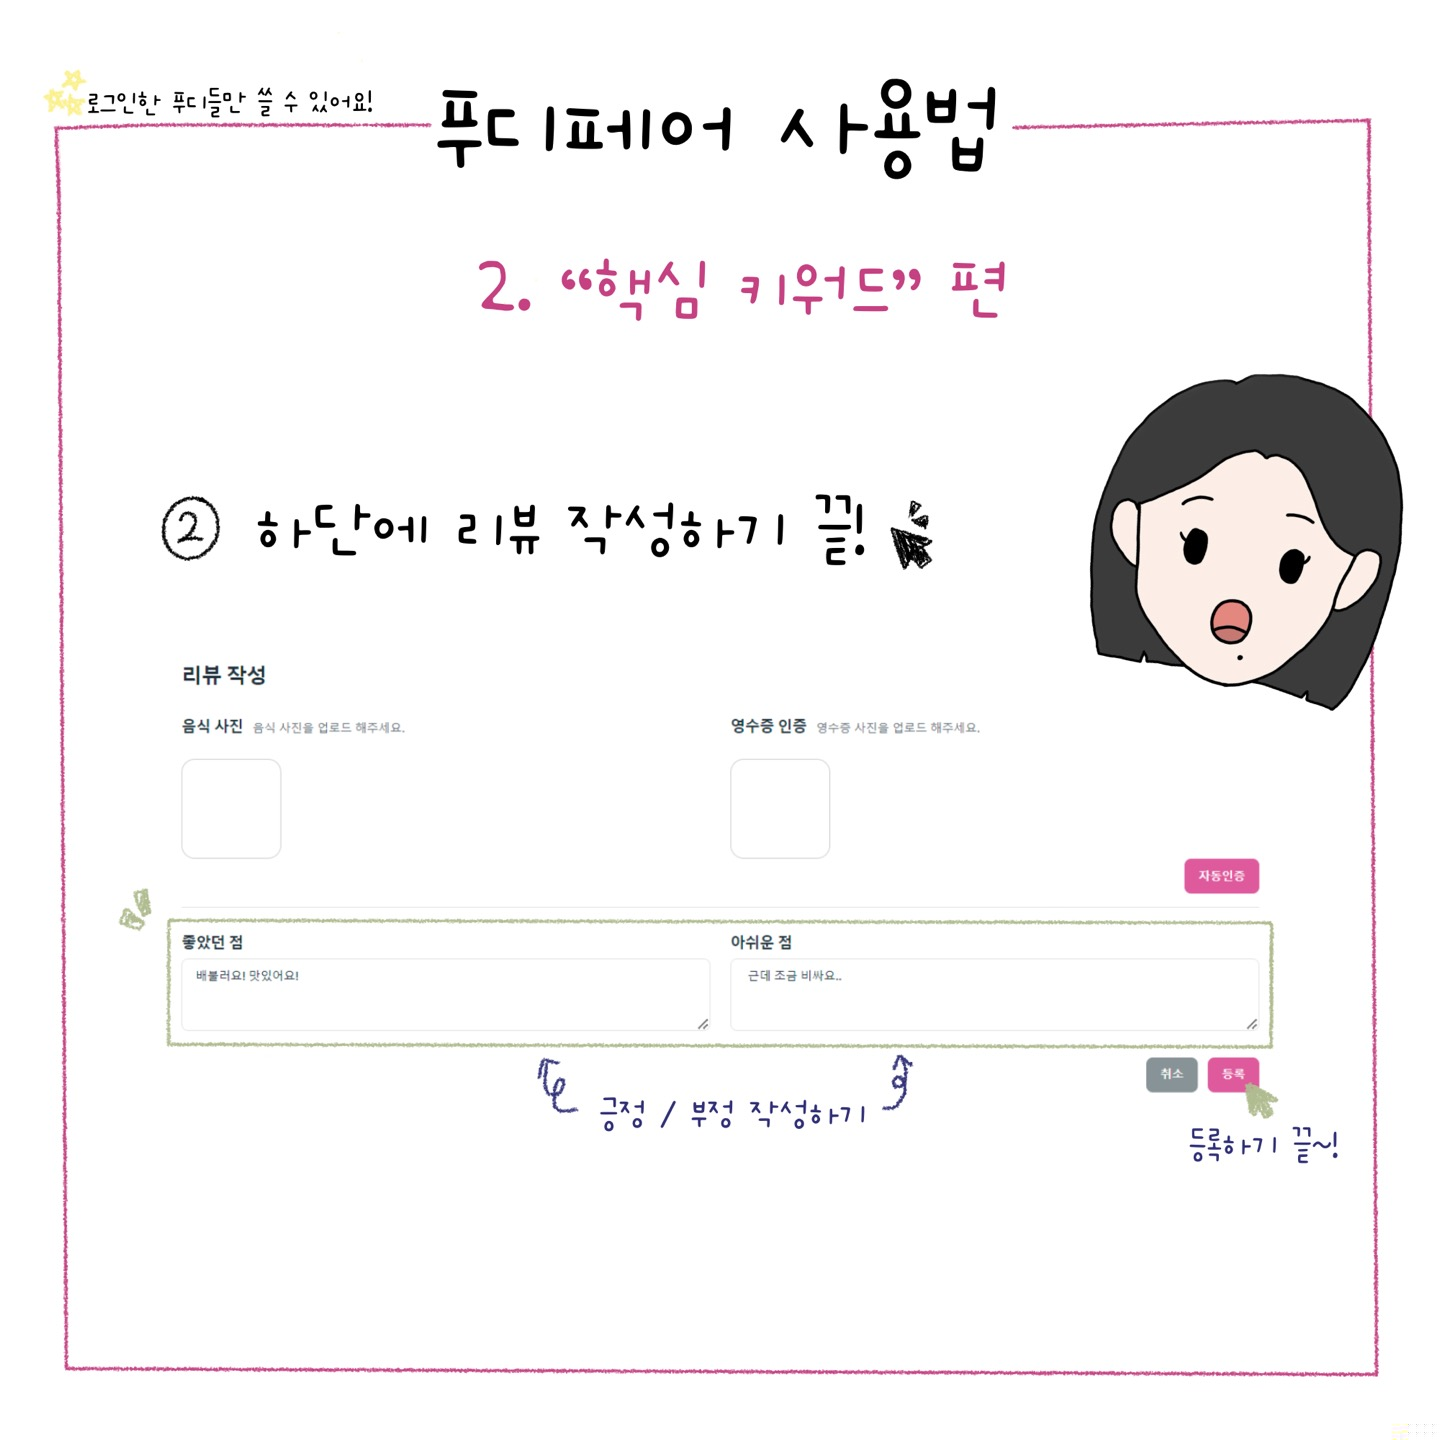 로그인한 푸디들만 쓸 수 있어요!
푸디페어 사용법
2. “핵심 키워드” 편
② 하단에 리뷰 작성하기 끝!
리뷰 작성
음식 사진 음식 사진을 업로드 해주세요.
영수증 인증 영수증 사진을 업로드 해주세요.
자동인증
좋았던 점
아쉬운 점
배불러요! 맛있어요!
근데 조금 비싸요..
취소
등록
긍정 / 부정 작성하기
등록하기 끝~!